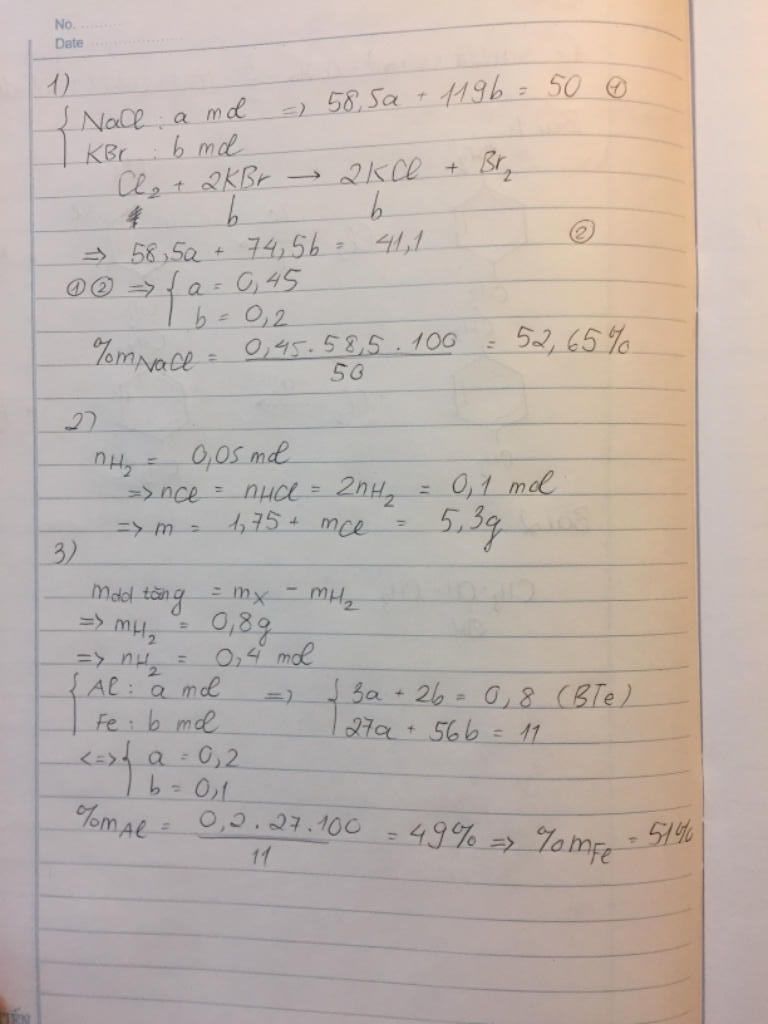 No. ..........
Date ....................
1)
{ NaCl : a mol => 58,5a + 119b = 50 ①
KBr : b mol
Cl₂ + 2KBr → 2KCl + Br₂
b b
=> 58,5a + 74,5b = 41,1 ②
①② => { a = 0,45
b = 0,2
%mNaCl = 0,45.58,5.100 / 50 = 52,65%
2)
nH₂ = 0,05 mol
=> nCl = nHCl = 2nH₂ = 0,1 mol
=> m = 1,75 + mCl = 5,3g
3)
mdd tăng = mX - mH₂
=> mH₂ = 0,8g
=> nH₂ = 0,4 mol
{ Al : a mol => { 3a + 2b = 0,8 (BTe)
Fe : b mol 27a + 56b = 11
<=> { a = 0,2
b = 0,1
%mAl = 0,2.27.100 / 11 = 49% => %mFe = 51%